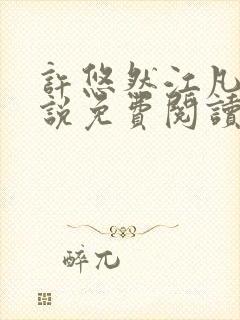 許悠然江凡
說免費閱讀
醉兀